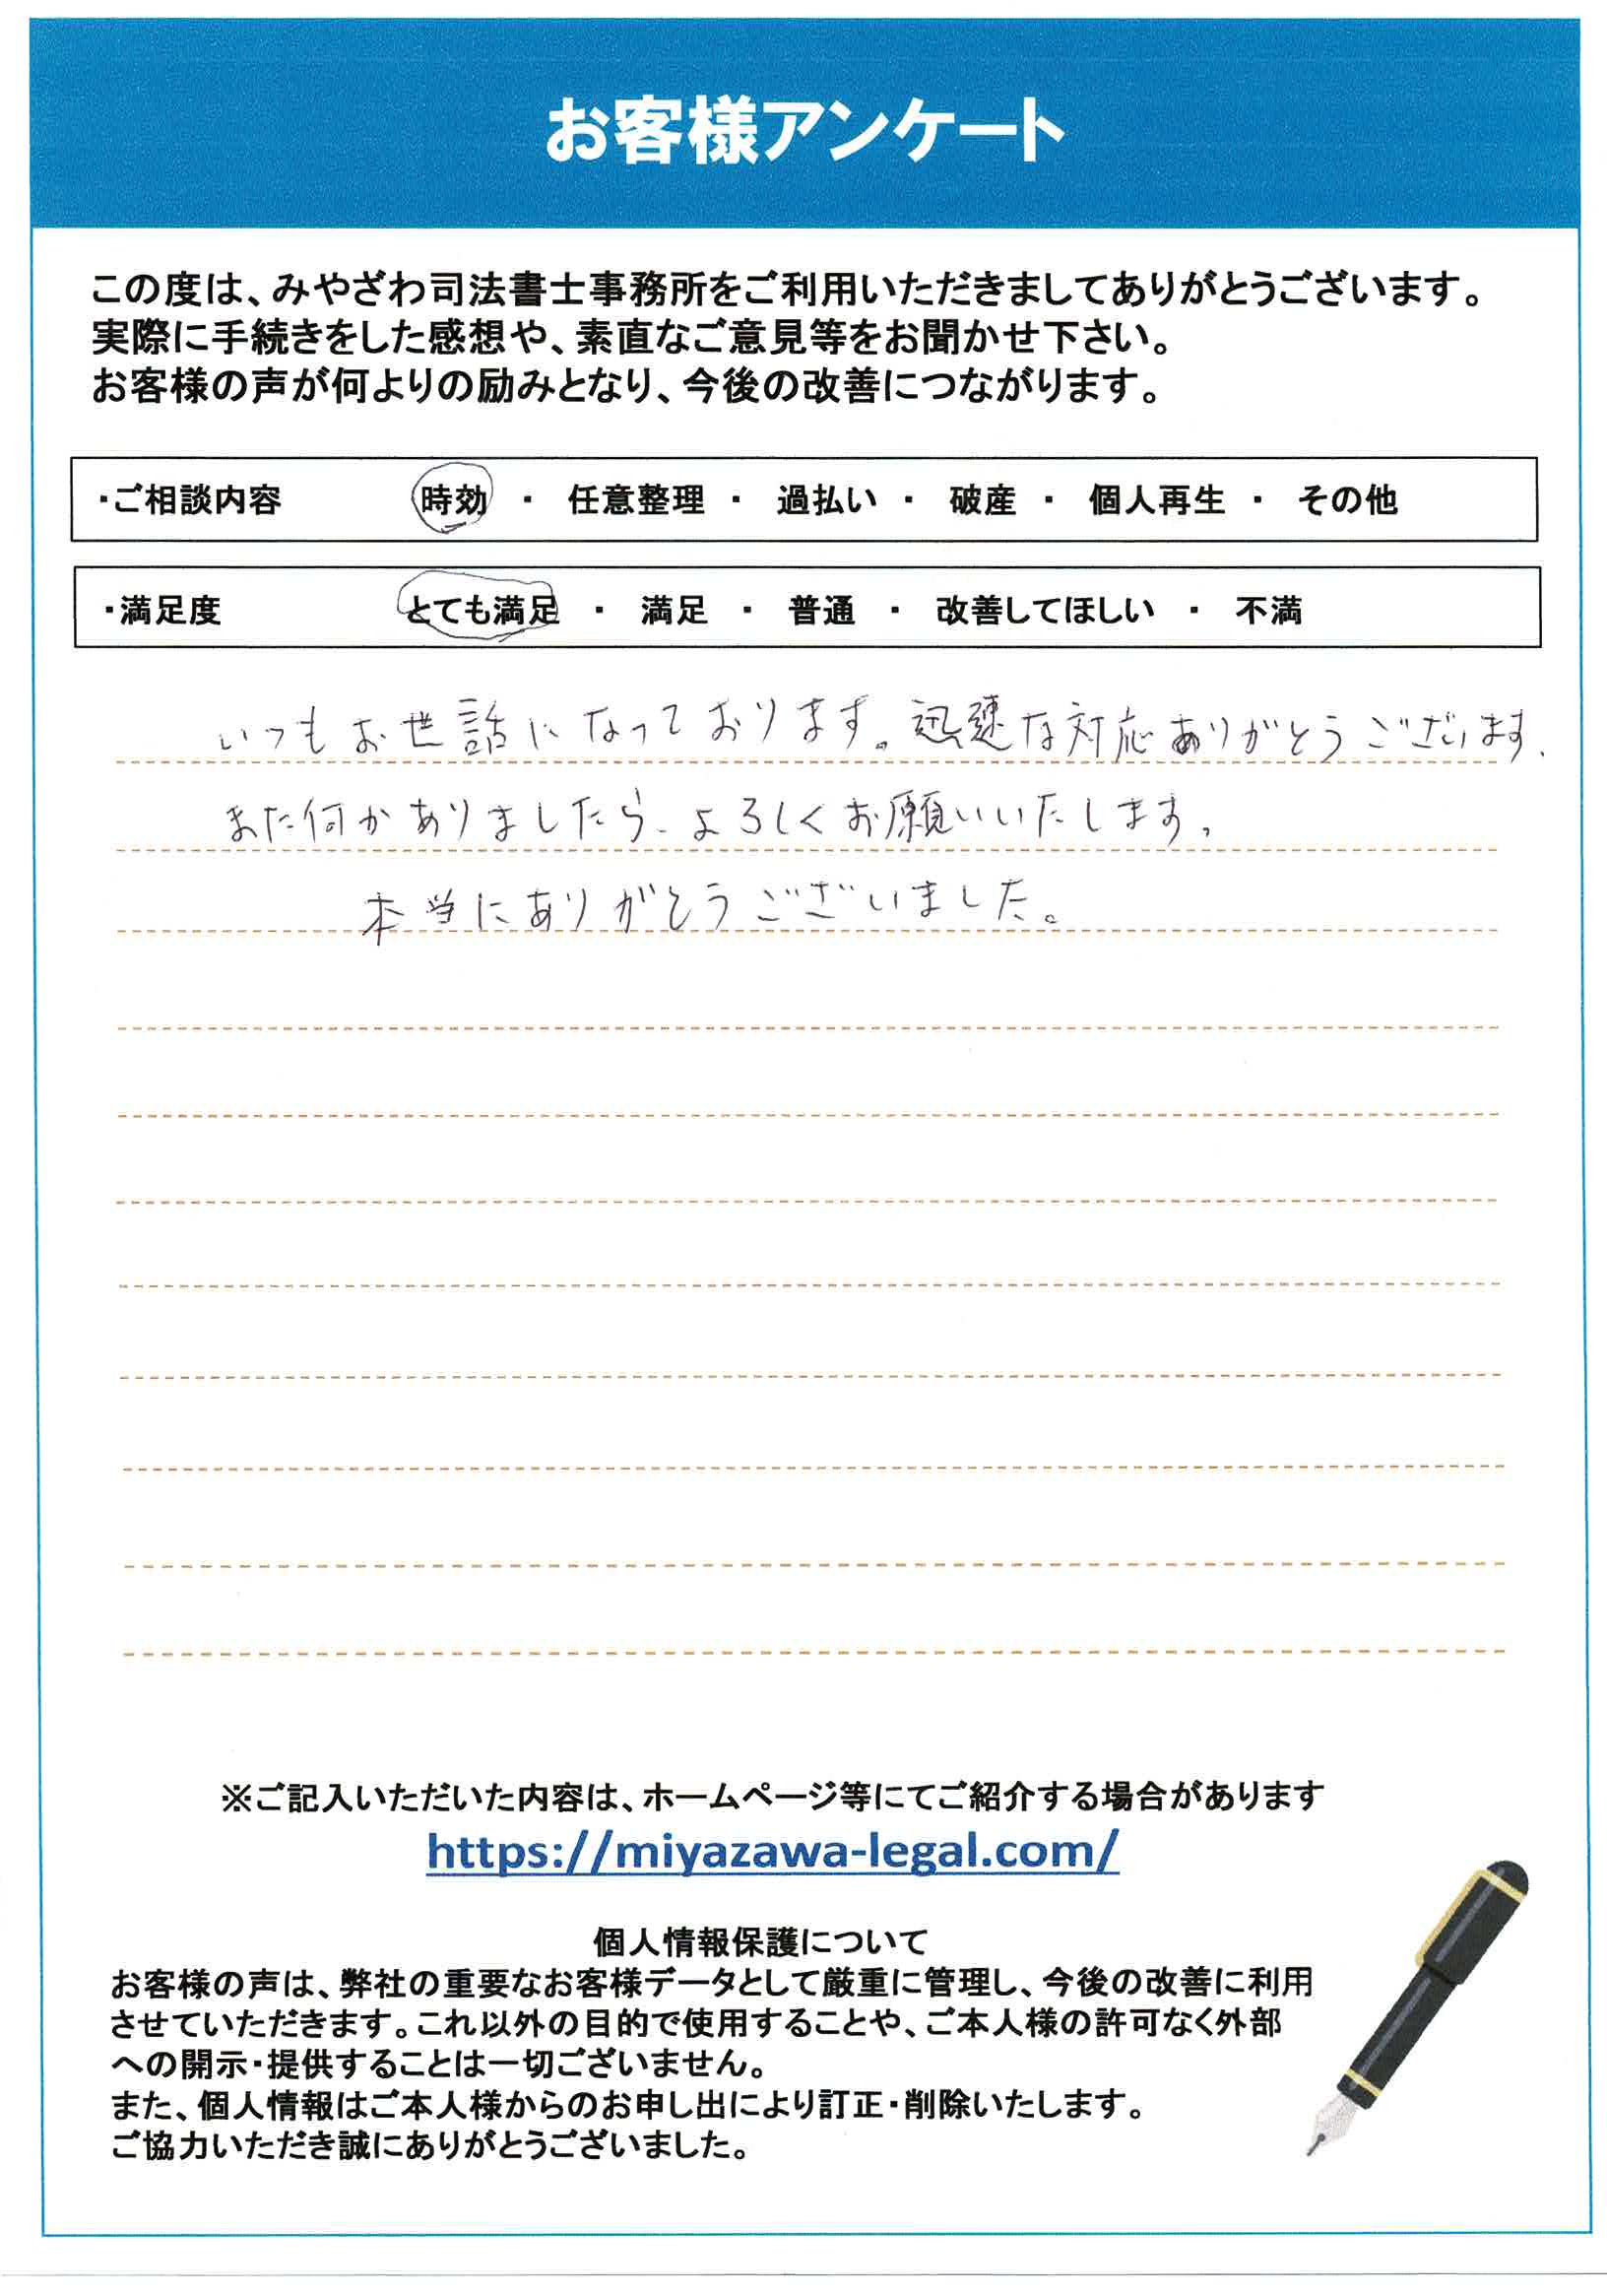 お客様アンケート
この度は、みやざわ司法書士事務所をご利用いただきましてありがとうございます。
実際に手続きをした感想や、素直なご意見等をお聞かせ下さい。
お客様の声が何よりの励みとなり、今後の改善につながります。
・ご相談内容 時効 ・ 任意整理 ・ 過払い ・ 破産 ・ 個人再生 ・ その他
・満足度 とても満足 ・ 満足 ・ 普通 ・ 改善してほしい ・ 不満
いつもお世話になっております。迅速な対応ありがとうございます.
また何かありましたら、よろしくお願いいたします。
本当にありがとうございました。
※ご記入いただいた内容は、ホームページ等にてご紹介する場合があります
https://miyazawa-legal.com/
個人情報保護について
お客様の声は、弊社の重要なお客様データとして厳重に管理し、今後の改善に利用
させていただきます。これ以外の目的で使用することや、ご本人様の許可なく外部
への開示・提供することは一切ございません。
また、個人情報はご本人様からのお申し出により訂正・削除いたします。
ご協力いただき誠にありがとうございました。